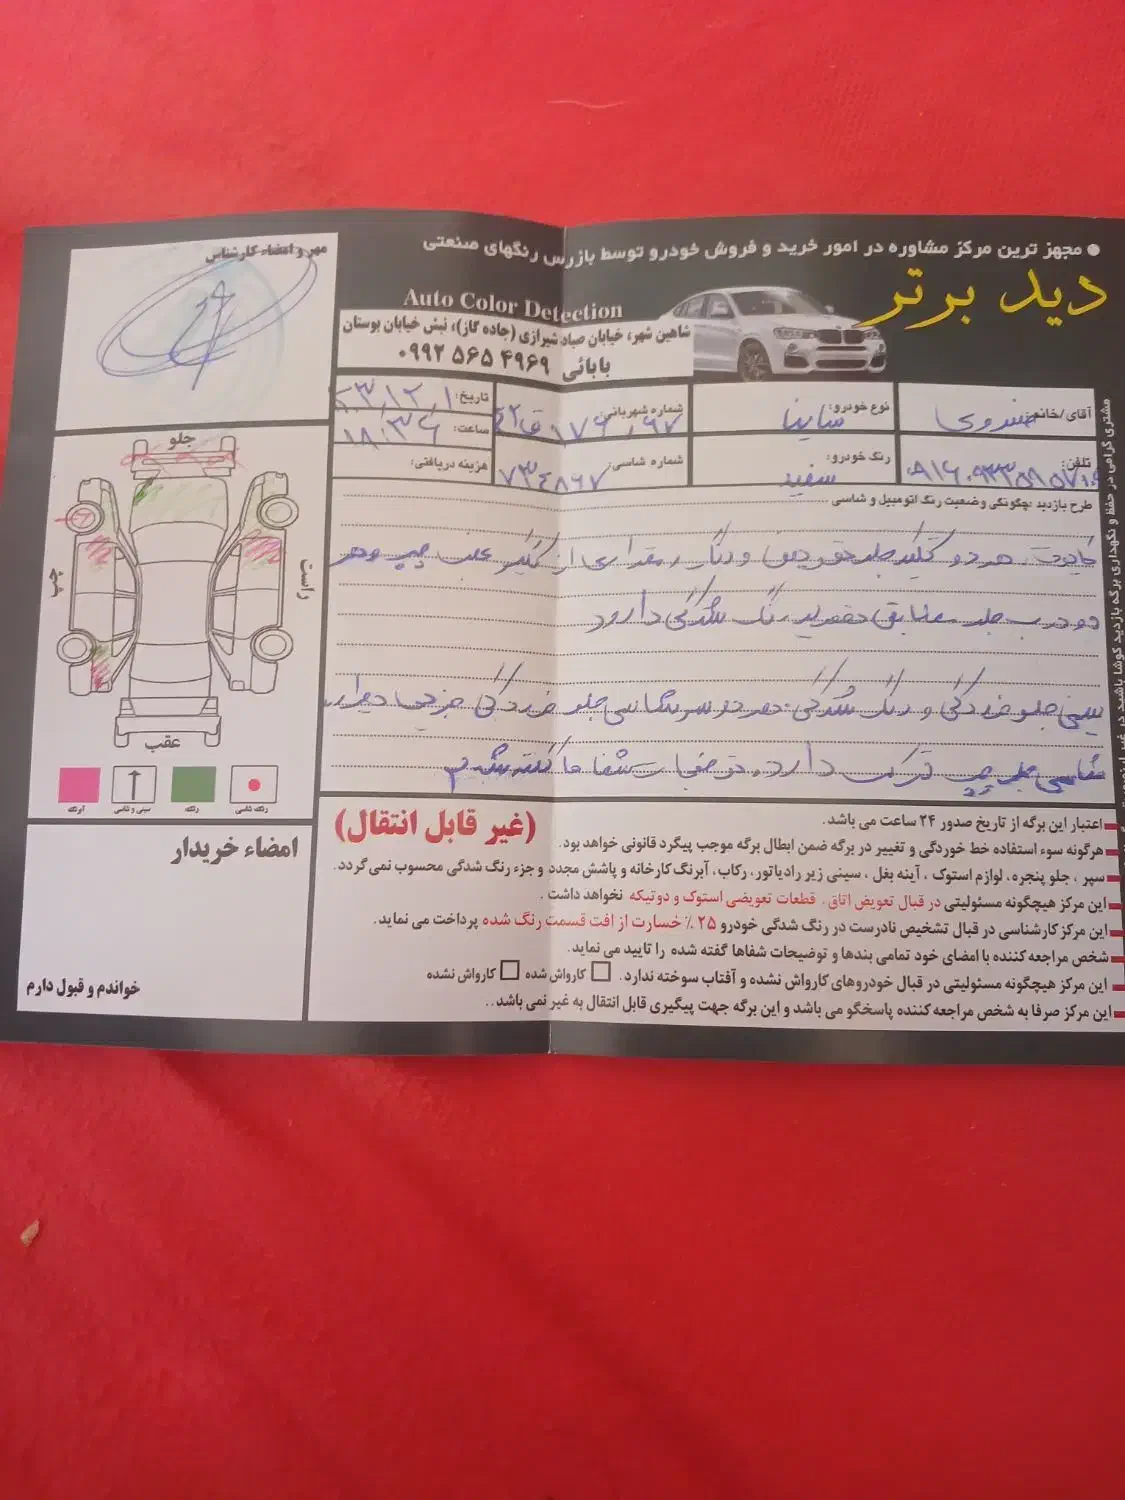 ● مجهز ترین مرکز مشاوره در امور خرید و فروش خودرو توسط بازرس رنگهای صنعتی
دید برتر
Auto Color Detection
شاهین شهر، خیابان صیاد شیرازی (جاده گاز)، نبش خیابان بوستان
بابائی ۰۹۹۲ ۵۶۵ ۴۹۶۹
مهر و امضاء کارشناس
آقای/خانم:
نوع خودرو: ساینا
شماره شهربانی:
تاریخ:
ساعت: ۱۸:۳۶
تلفن:
رنگ خودرو: سفید
شماره شاسی: ۷۳۴۸۶۷
هزینه دریافتی:
طرح بازدید :چگونگی وضعیت رنگ اتومبیل و شاسی
کاپوت، هر دو گلگیر جلو تعویض و رنگ، مقداری از گلگیر عقب چپ و هر
دو درب جلو مطابق تصویر رنگ شدگی دارد
سینی جلو خوردگی و رنگ شدگی، هر دو سر شاسی جلو خوردگی جزئی دارد،
شاسی جلو چپ ترک دارد، توضیحات شفاها گفته شد
جلو
چپ
راست
عقب
رنگ شاسی
رنگ
سینی و شاسی
آبرنگ
امضاء خریدار
خواندم و قبول دارم
(غیر قابل انتقال)
اعتبار این برگه از تاریخ صدور ۲۴ ساعت می باشد.
هرگونه سوء استفاده خط خوردگی و تغییر در برگه ضمن ابطال برگه موجب پیگرد قانونی خواهد بود.
سپر ، جلو پنجره، لوازم استوک ، آینه بغل ، سینی زیر رادیاتور، رکاب، آبرنگ کارخانه و پاشش مجدد و جزء رنگ شدگی محسوب نمی گردد.
این مرکز هیچگونه مسئولیتی در قبال تعویض اتاق، قطعات تعویضی استوک و دوتیکه نخواهد داشت .
این مرکز کارشناسی در قبال تشخیص نادرست در رنگ شدگی خودرو ۲۵٪ خسارت از افت قسمت رنگ شده پرداخت می نماید.
شخص مراجعه کننده با امضای خود تمامی بندها و توضیحات شفاها گفته شده را تایید می نماید.
این مرکز هیچگونه مسئولیتی در قبال خودروهای کارواش نشده و آفتاب سوخته ندارد. کارواش شده کارواش نشده
این مرکز صرفا به شخص مراجعه کننده پاسخگو می باشد و این برگه جهت پیگیری قابل انتقال به غیر نمی باشد..
مشتری گرامی در حفظ و نگهداری برگه بازدید کوشا باشید در غیر